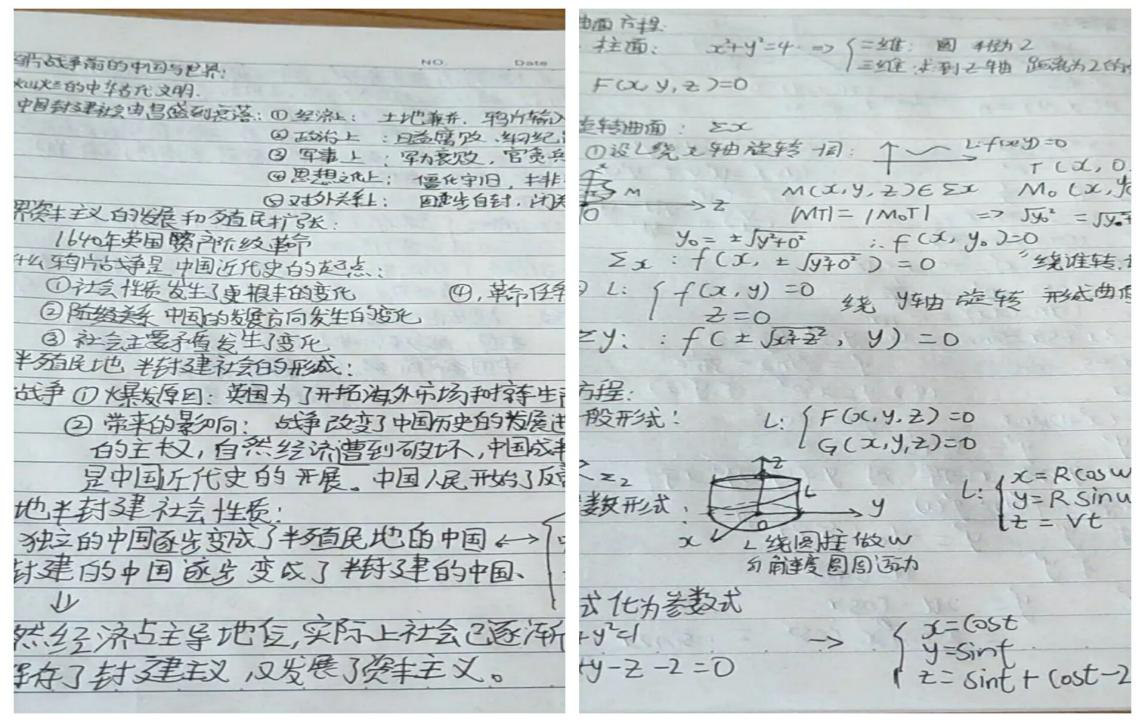 NO.
Date
片战争前的中国与世界:
的中华古代文明.
中国封建社会由昌盛到衰落: ① 经济上: 土地兼并. 鸦片输入
② 政治上: 日益腐败. 纲纪
③ 军事上: 军力衰败, 官贪兵
④ 思想文化上: 僵化守旧,
⑤ 对外关系上: 固步自封, 闭关
界资本主义的发展和殖民扩张:
1640年英国资产阶级革命
什么鸦片战争是中国近代史的起点:
① 社会性质发生了根本的变化 ④, 革命任务
② 阶级关系 中国的发展方向发生的变化
③ 社会主要矛盾发生了变化,
半殖民地 半封建社会的形成:
战争 ① 爆发原因: 英国为了开拓海外市场和
② 带来的影响: 战争改变了中国历史的发展进
的主权, 自然经济遭到破坏, 中国成半
是中国近代史的开展。中国人民开始了反
地半封建社会性质:
独立的中国逐步变成了半殖民地的中国 ↔
封建的中国逐步变成了半封建的中国、
⇓
然经济占主导地位, 实际上社会已逐渐
保存了封建主义, 又发展了资本主义。
曲面方程.
柱面: x²+y²=4 => { 二维: 圆 半径为2
三维: 到Z轴 距离为2的
F(x,y,z)=0
旋转曲面: Σx
① 设L绕x轴旋转一周: L: f(x,y)=0
T(x,0,
M
z
0
M(x,y,z)∈Σx M₀(x,y₀
|MT|=|M₀T| => √y₀² =
y₀=±√y²+0² ∴ f(x,y₀)=0
Σx: f(x, ±√y²+0²)=0 "绕谁转,
L: { f(x,y)=0 绕 y轴 旋转 形成曲
z=0
Σy: : f(±√x²+z², y)=0
方程:
般形式: L: { F(x,y,z)=0
G(x,y,z)=0
z₂
参数形式:
z
L
y
0
x
L: { x=Rcosw
y=Rsinw
z=Vt
L 绕圆柱做w
角速度圆周运动
式化为参数式
+y²=1 → { x=cost
y=sint
+y-z-2=0 z=sint+cost-2